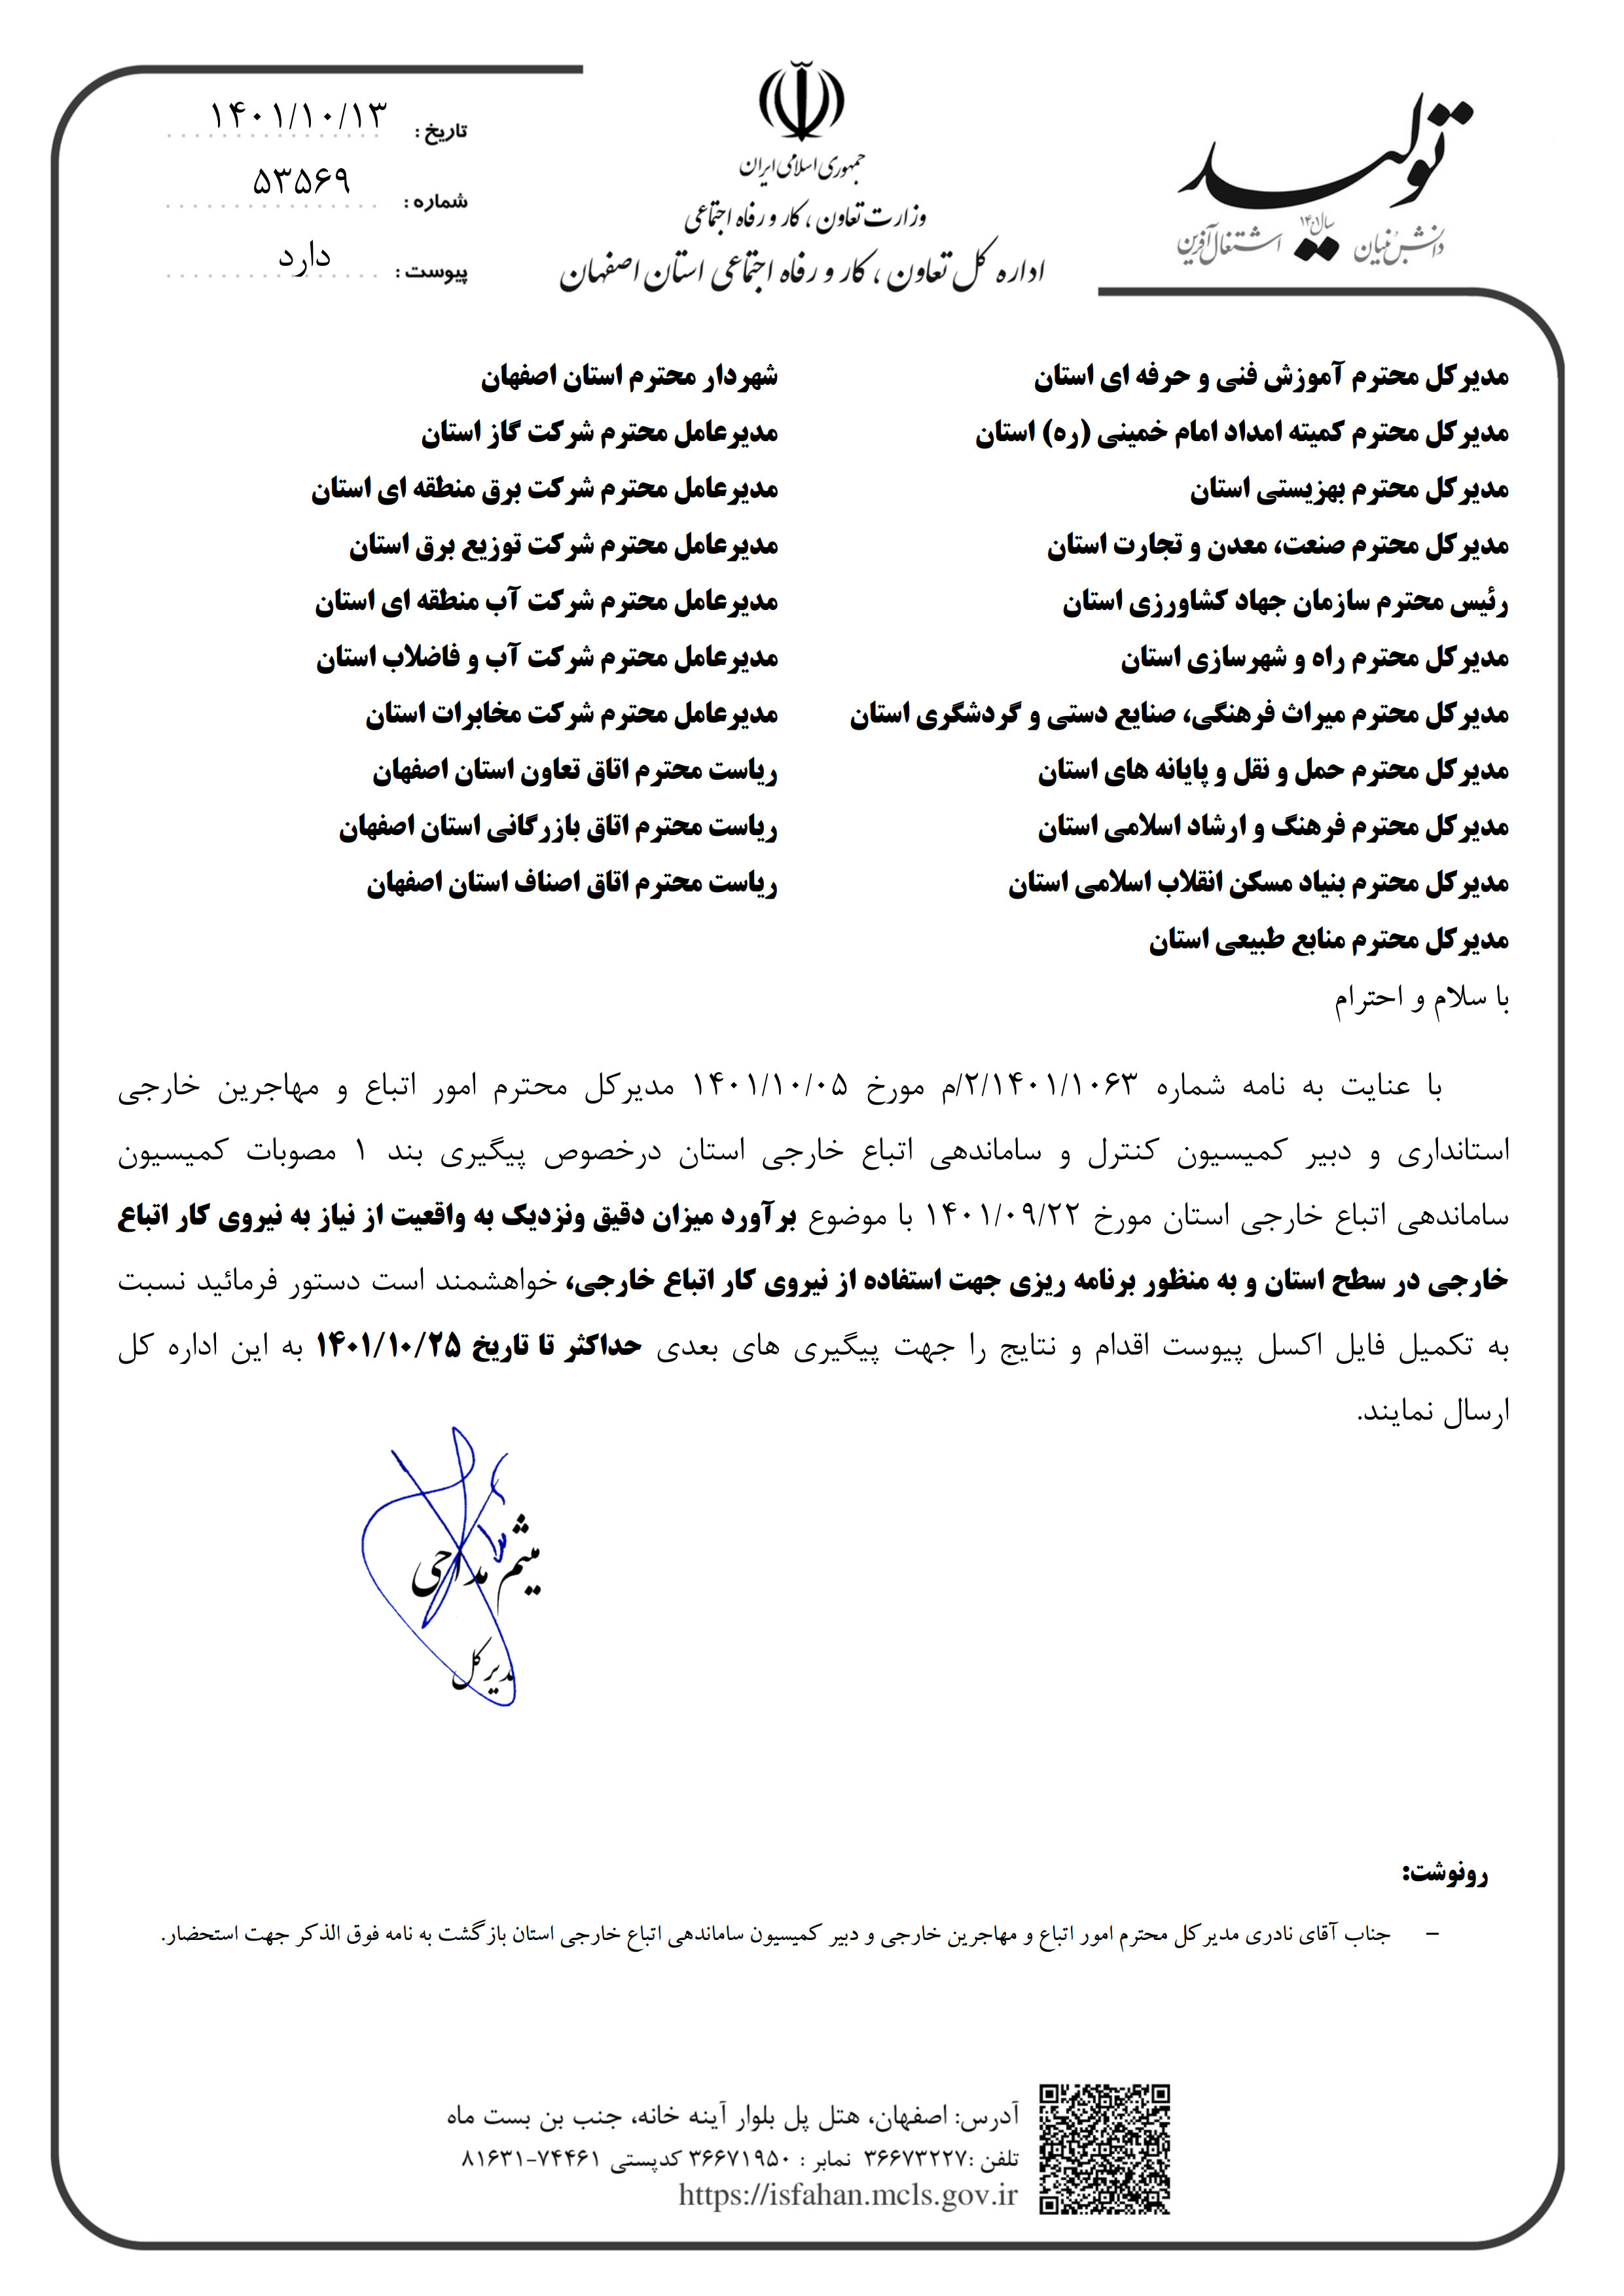 تولید
سال ۱۴۰۱
دانش بنیان اشتغال آفرین
جمهوری اسلامی ایران
وزارت تعاون ، کار و رفاه اجتماعی
اداره کل تعاون ، کار و رفاه اجتماعی استان اصفهان
تاریخ : ۱۴۰۱/۱۰/۱۳
شماره : ۵۳۵۶۹
پیوست : دارد
مدیرکل محترم آموزش فنی و حرفه ای استان
مدیرکل محترم کمیته امداد امام خمینی (ره) استان
مدیرکل محترم بهزیستی استان
مدیرکل محترم صنعت، معدن و تجارت استان
رئیس محترم سازمان جهاد کشاورزی استان
مدیرکل محترم راه و شهرسازی استان
مدیرکل محترم میراث فرهنگی، صنایع دستی و گردشگری استان
مدیرکل محترم حمل و نقل و پایانه های استان
مدیرکل محترم فرهنگ و ارشاد اسلامی استان
مدیرکل محترم بنیاد مسکن انقلاب اسلامی استان
مدیرکل محترم منابع طبیعی استان
شهردار محترم استان اصفهان
مدیرعامل محترم شرکت گاز استان
مدیرعامل محترم شرکت برق منطقه ای استان
مدیرعامل محترم شرکت توزیع برق استان
مدیرعامل محترم شرکت آب منطقه ای استان
مدیرعامل محترم شرکت آب و فاضلاب استان
مدیرعامل محترم شرکت مخابرات استان
ریاست محترم اتاق تعاون استان اصفهان
ریاست محترم اتاق بازرگانی استان اصفهان
ریاست محترم اتاق اصناف استان اصفهان
با سلام و احترام
با عنایت به نامه شماره ۲/۱۴۰۱/۱۰۶۳/م مورخ ۱۴۰۱/۱۰/۰۵ مدیرکل محترم امور اتباع و مهاجرین خارجی
استانداری و دبیر کمیسیون کنترل و ساماندهی اتباع خارجی استان درخصوص پیگیری بند ۱ مصوبات کمیسیون
ساماندهی اتباع خارجی استان مورخ ۱۴۰۱/۰۹/۲۲ با موضوع برآورد میزان دقیق ونزدیک به واقعیت از نیاز به نیروی کار اتباع
خارجی در سطح استان و به منظور برنامه ریزی جهت استفاده از نیروی کار اتباع خارجی، خواهشمند است دستور فرمائید نسبت
به تکمیل فایل اکسل پیوست اقدام و نتایج را جهت پیگیری های بعدی حداکثر تا تاریخ ۱۴۰۱/۱۰/۲۵ به این اداره کل
ارسال نمایند.
میثم مداحی
مدیرکل
رونوشت:
– جناب آقای نادری مدیرکل محترم امور اتباع و مهاجرین خارجی و دبیر کمیسیون ساماندهی اتباع خارجی استان بازگشت به نامه فوق الذکر جهت استحضار.
آدرس: اصفهان، هتل پل بلوار آینه خانه، جنب بن بست ماه
تلفن :۳۶۶۷۳۲۲۷ نمابر : ۳۶۶۷۱۹۵۰ کدپستی ۷۴۴۶۱-۸۱۶۳۱
https://isfahan.mcls.gov.ir